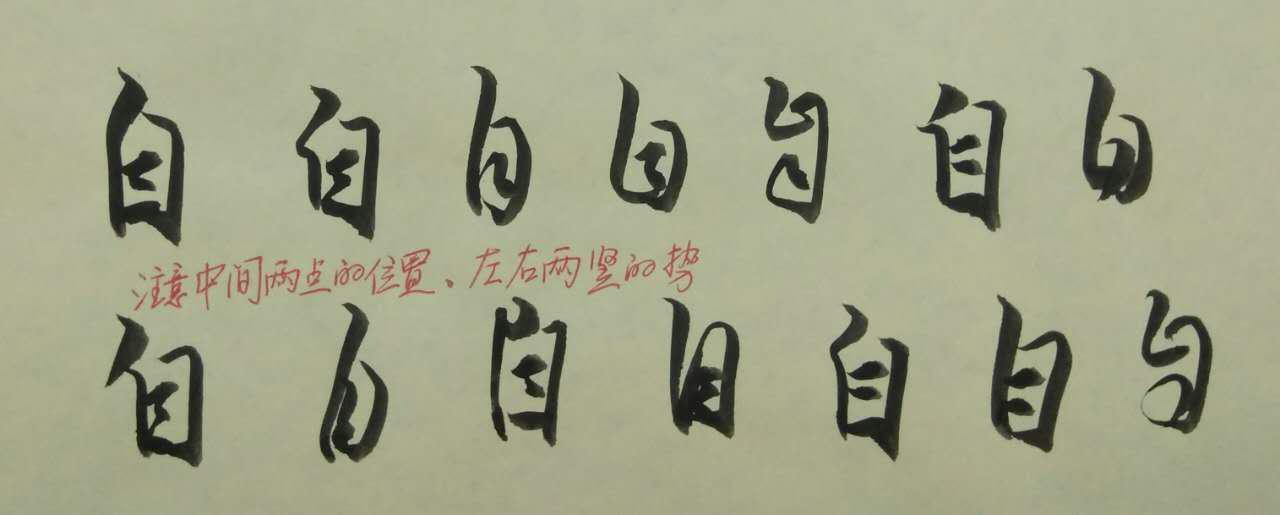 自自自自自自自
注意中间两点的位置、左右两竖的势
自自自自自自自